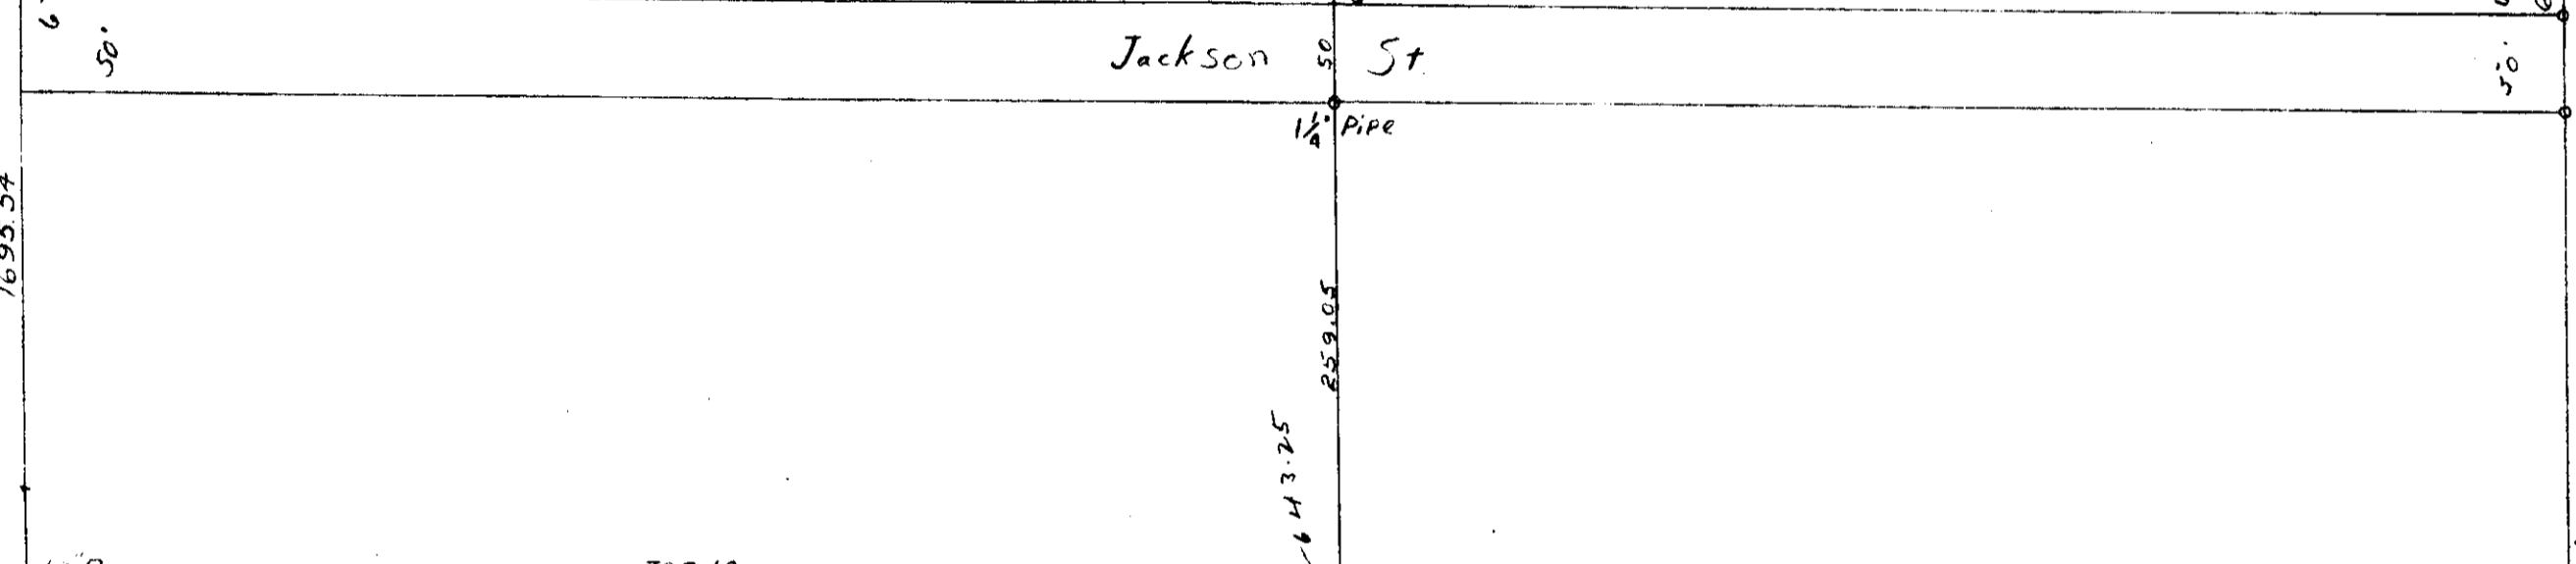 50'
Jackson 50 St.
50'
1¼" Pipe
1693.54
259.05
1643.25